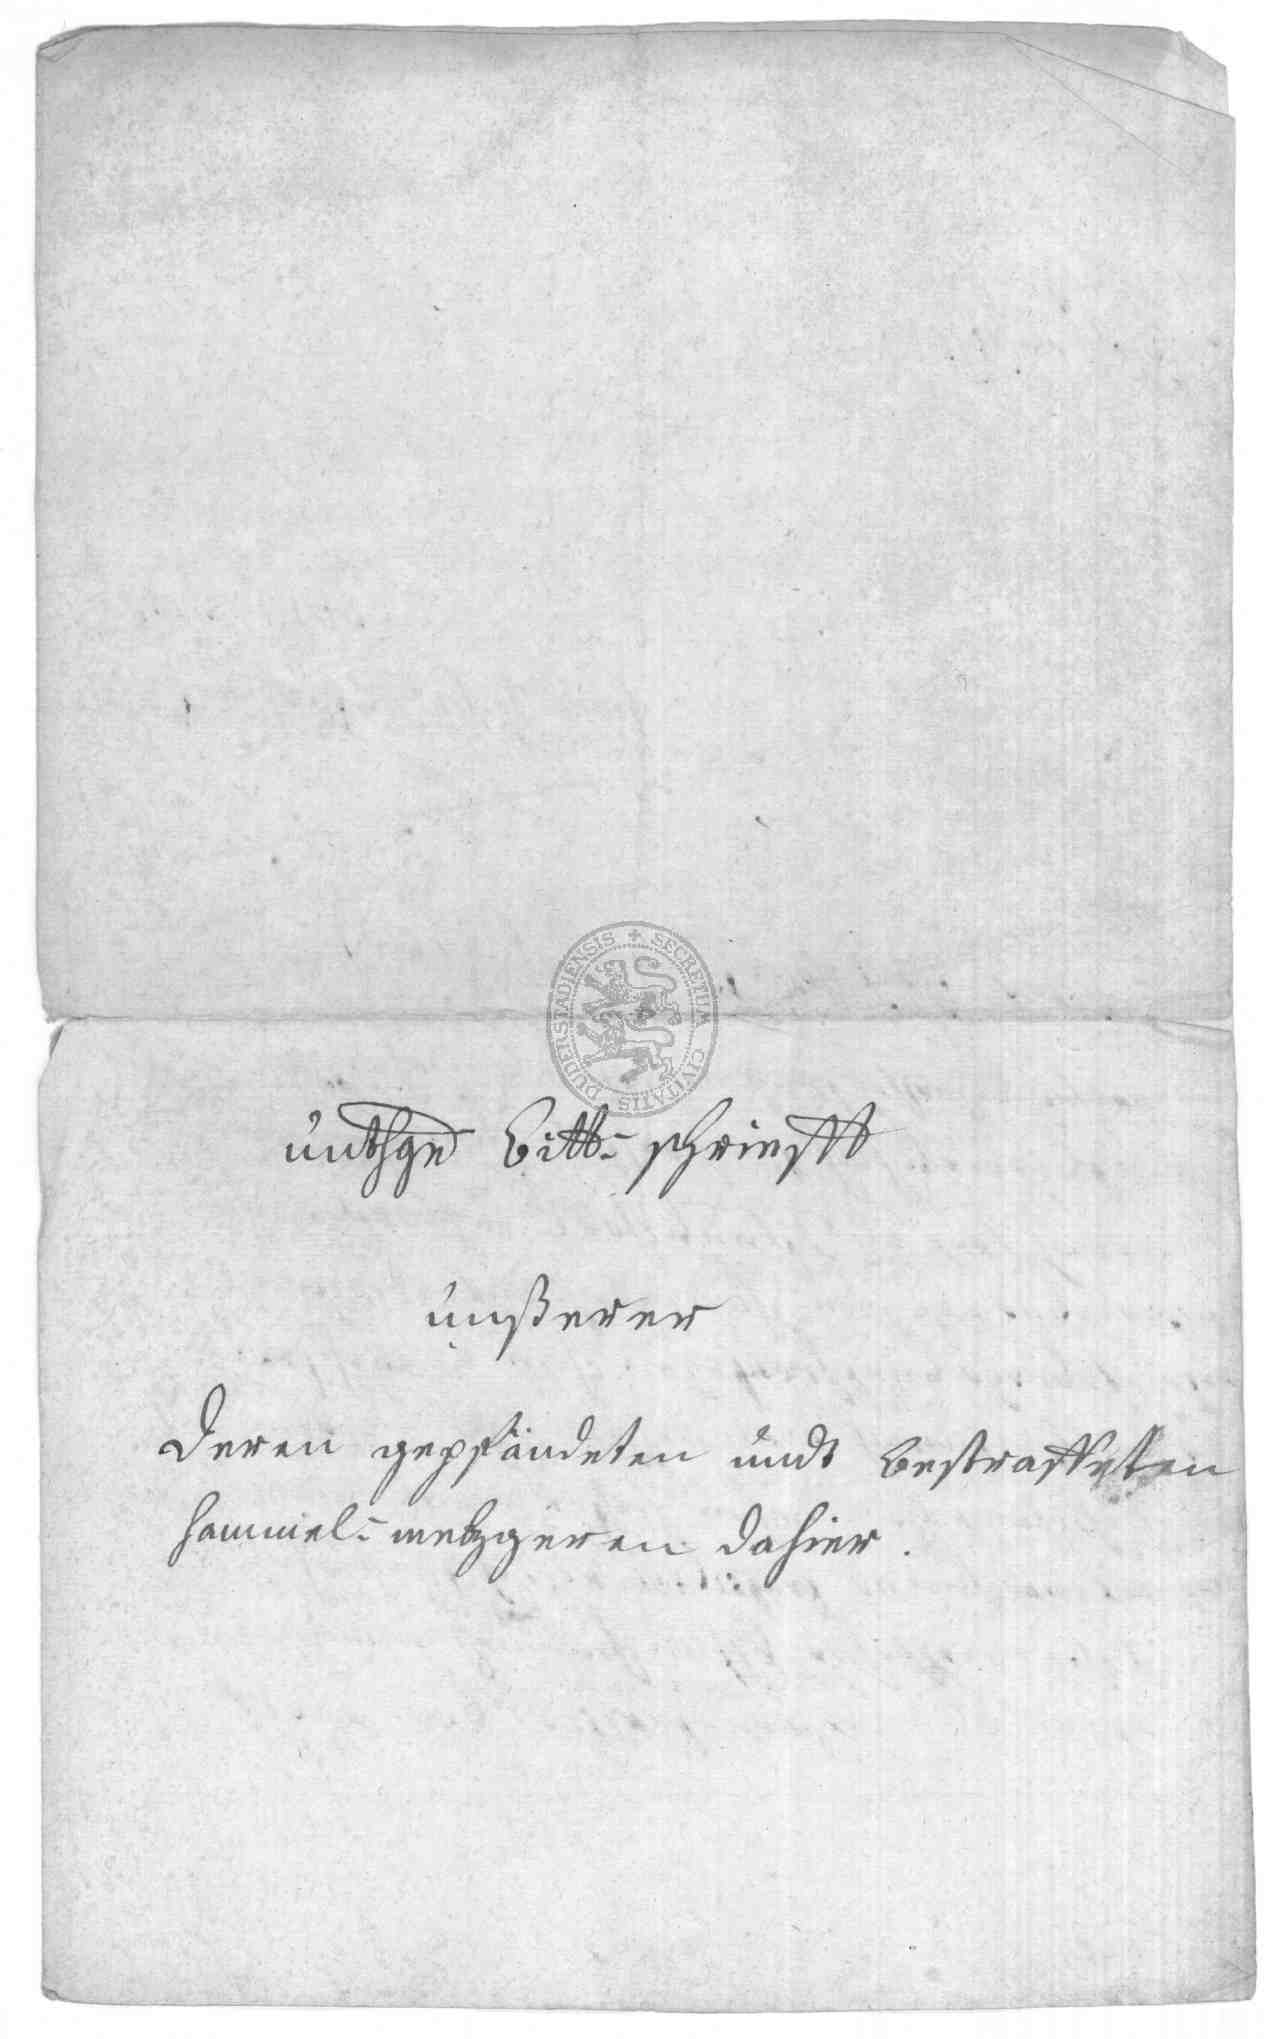 SECRETUM CIVITATIS DUDERSTADIENSIS
unthge Bitt- schriefft
unßerer
deren gepfändeten undt bestraffeten
hammel- metzgeren dahier.